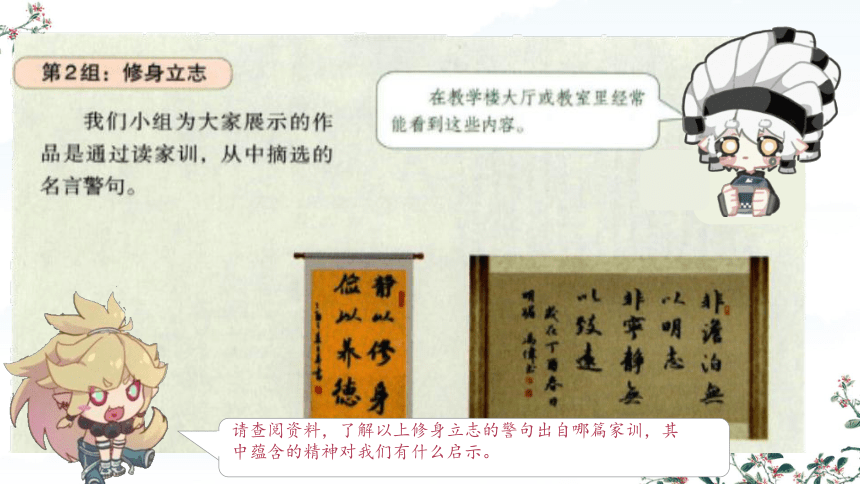 第2组：修身立志
我们小组为大家展示的作
品是通过读家训，从中摘选的
名言警句。
在教学楼大厅或教室里经常
能看到这些内容。
静以修身
俭以养德
非澹泊無
以明志
非寧静無
以致遠
歲在丁酉春日
请查阅资料，了解以上修身立志的警句出自哪篇家训，其
中蕴含的精神对我们有什么启示。